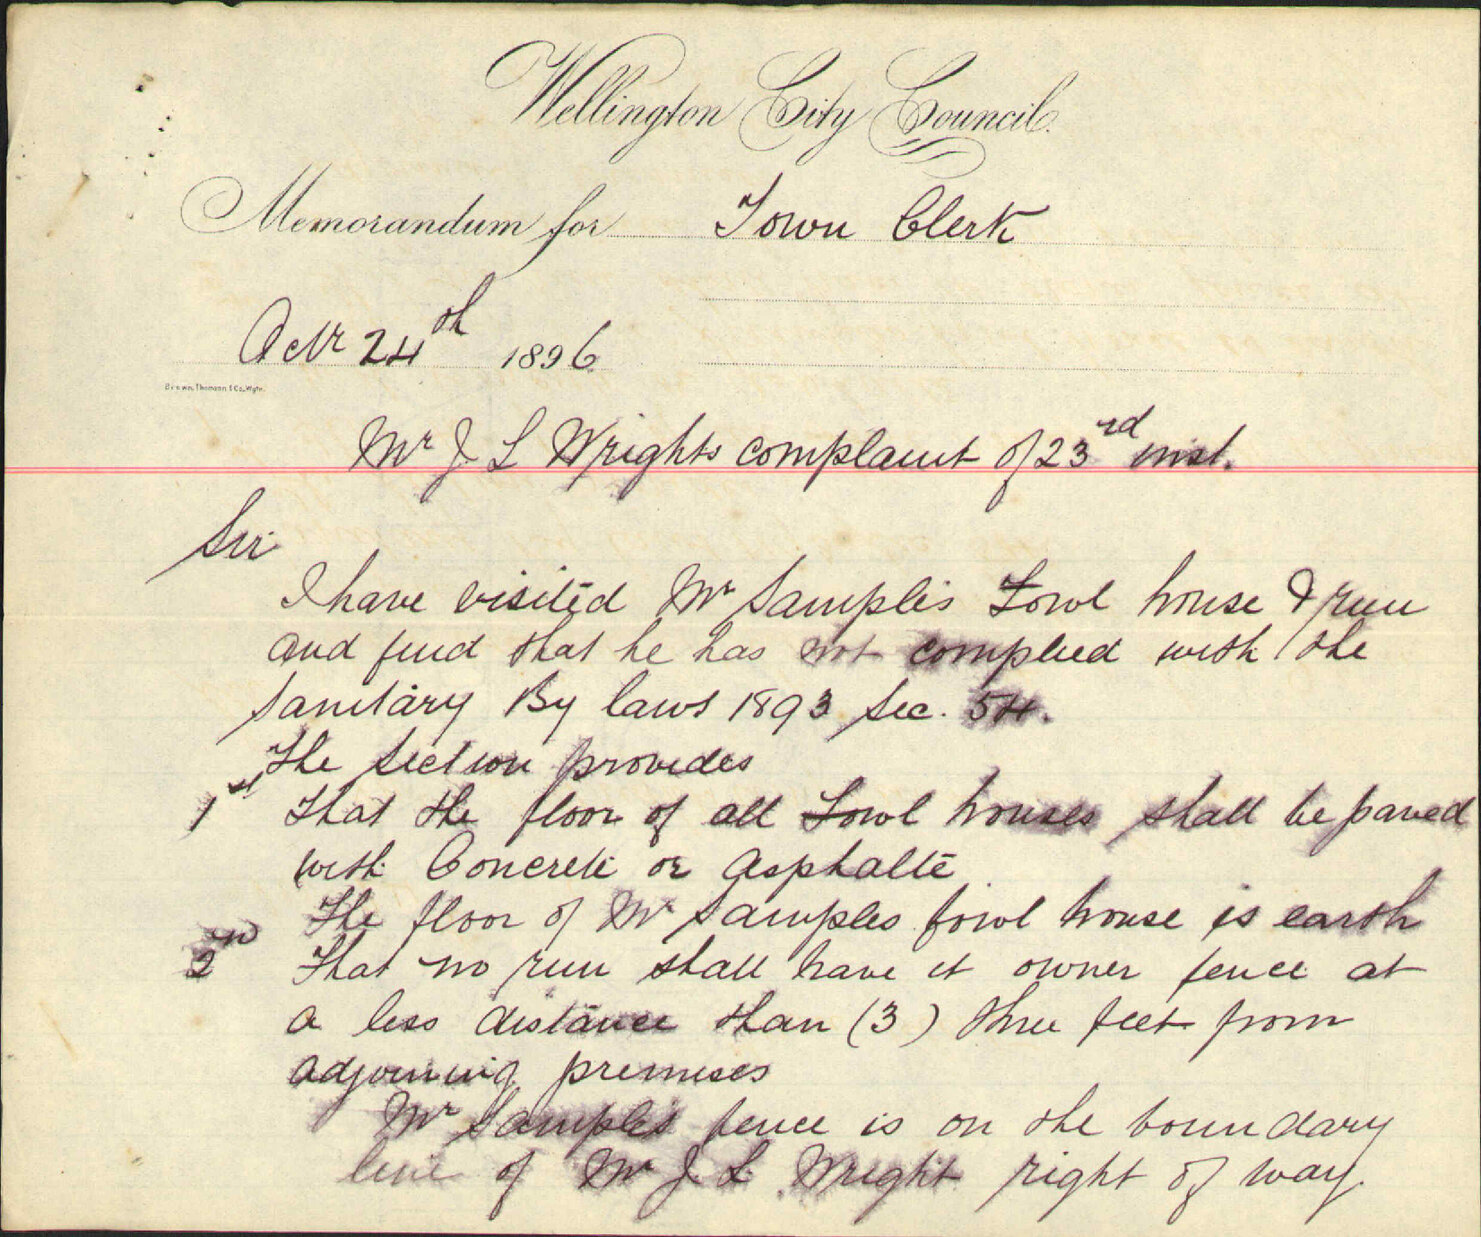 Wellington City Council.
Memorandum for Town Clerk
Octr 24th 1896
Brown, Thomson & Co., Wgtn.
Mr J L Wrights complaint of 23rd inst.
Sir
I have visited Mr Samples Fowl house & run
and find that he has not complied with the
Sanitary By laws 1893 Sec. 54.
The Section provides
1st That the floor of all Fowl houses shall be paved
with Concrete or Asphalte
The floor of Mr Samples fowl house is earth
2nd That no run shall have it owner fence at
a less distance than (3) three feet from
adjoining premises
Mr Samples fence is on the boundary
line of Mr J. L. Wright right of way.